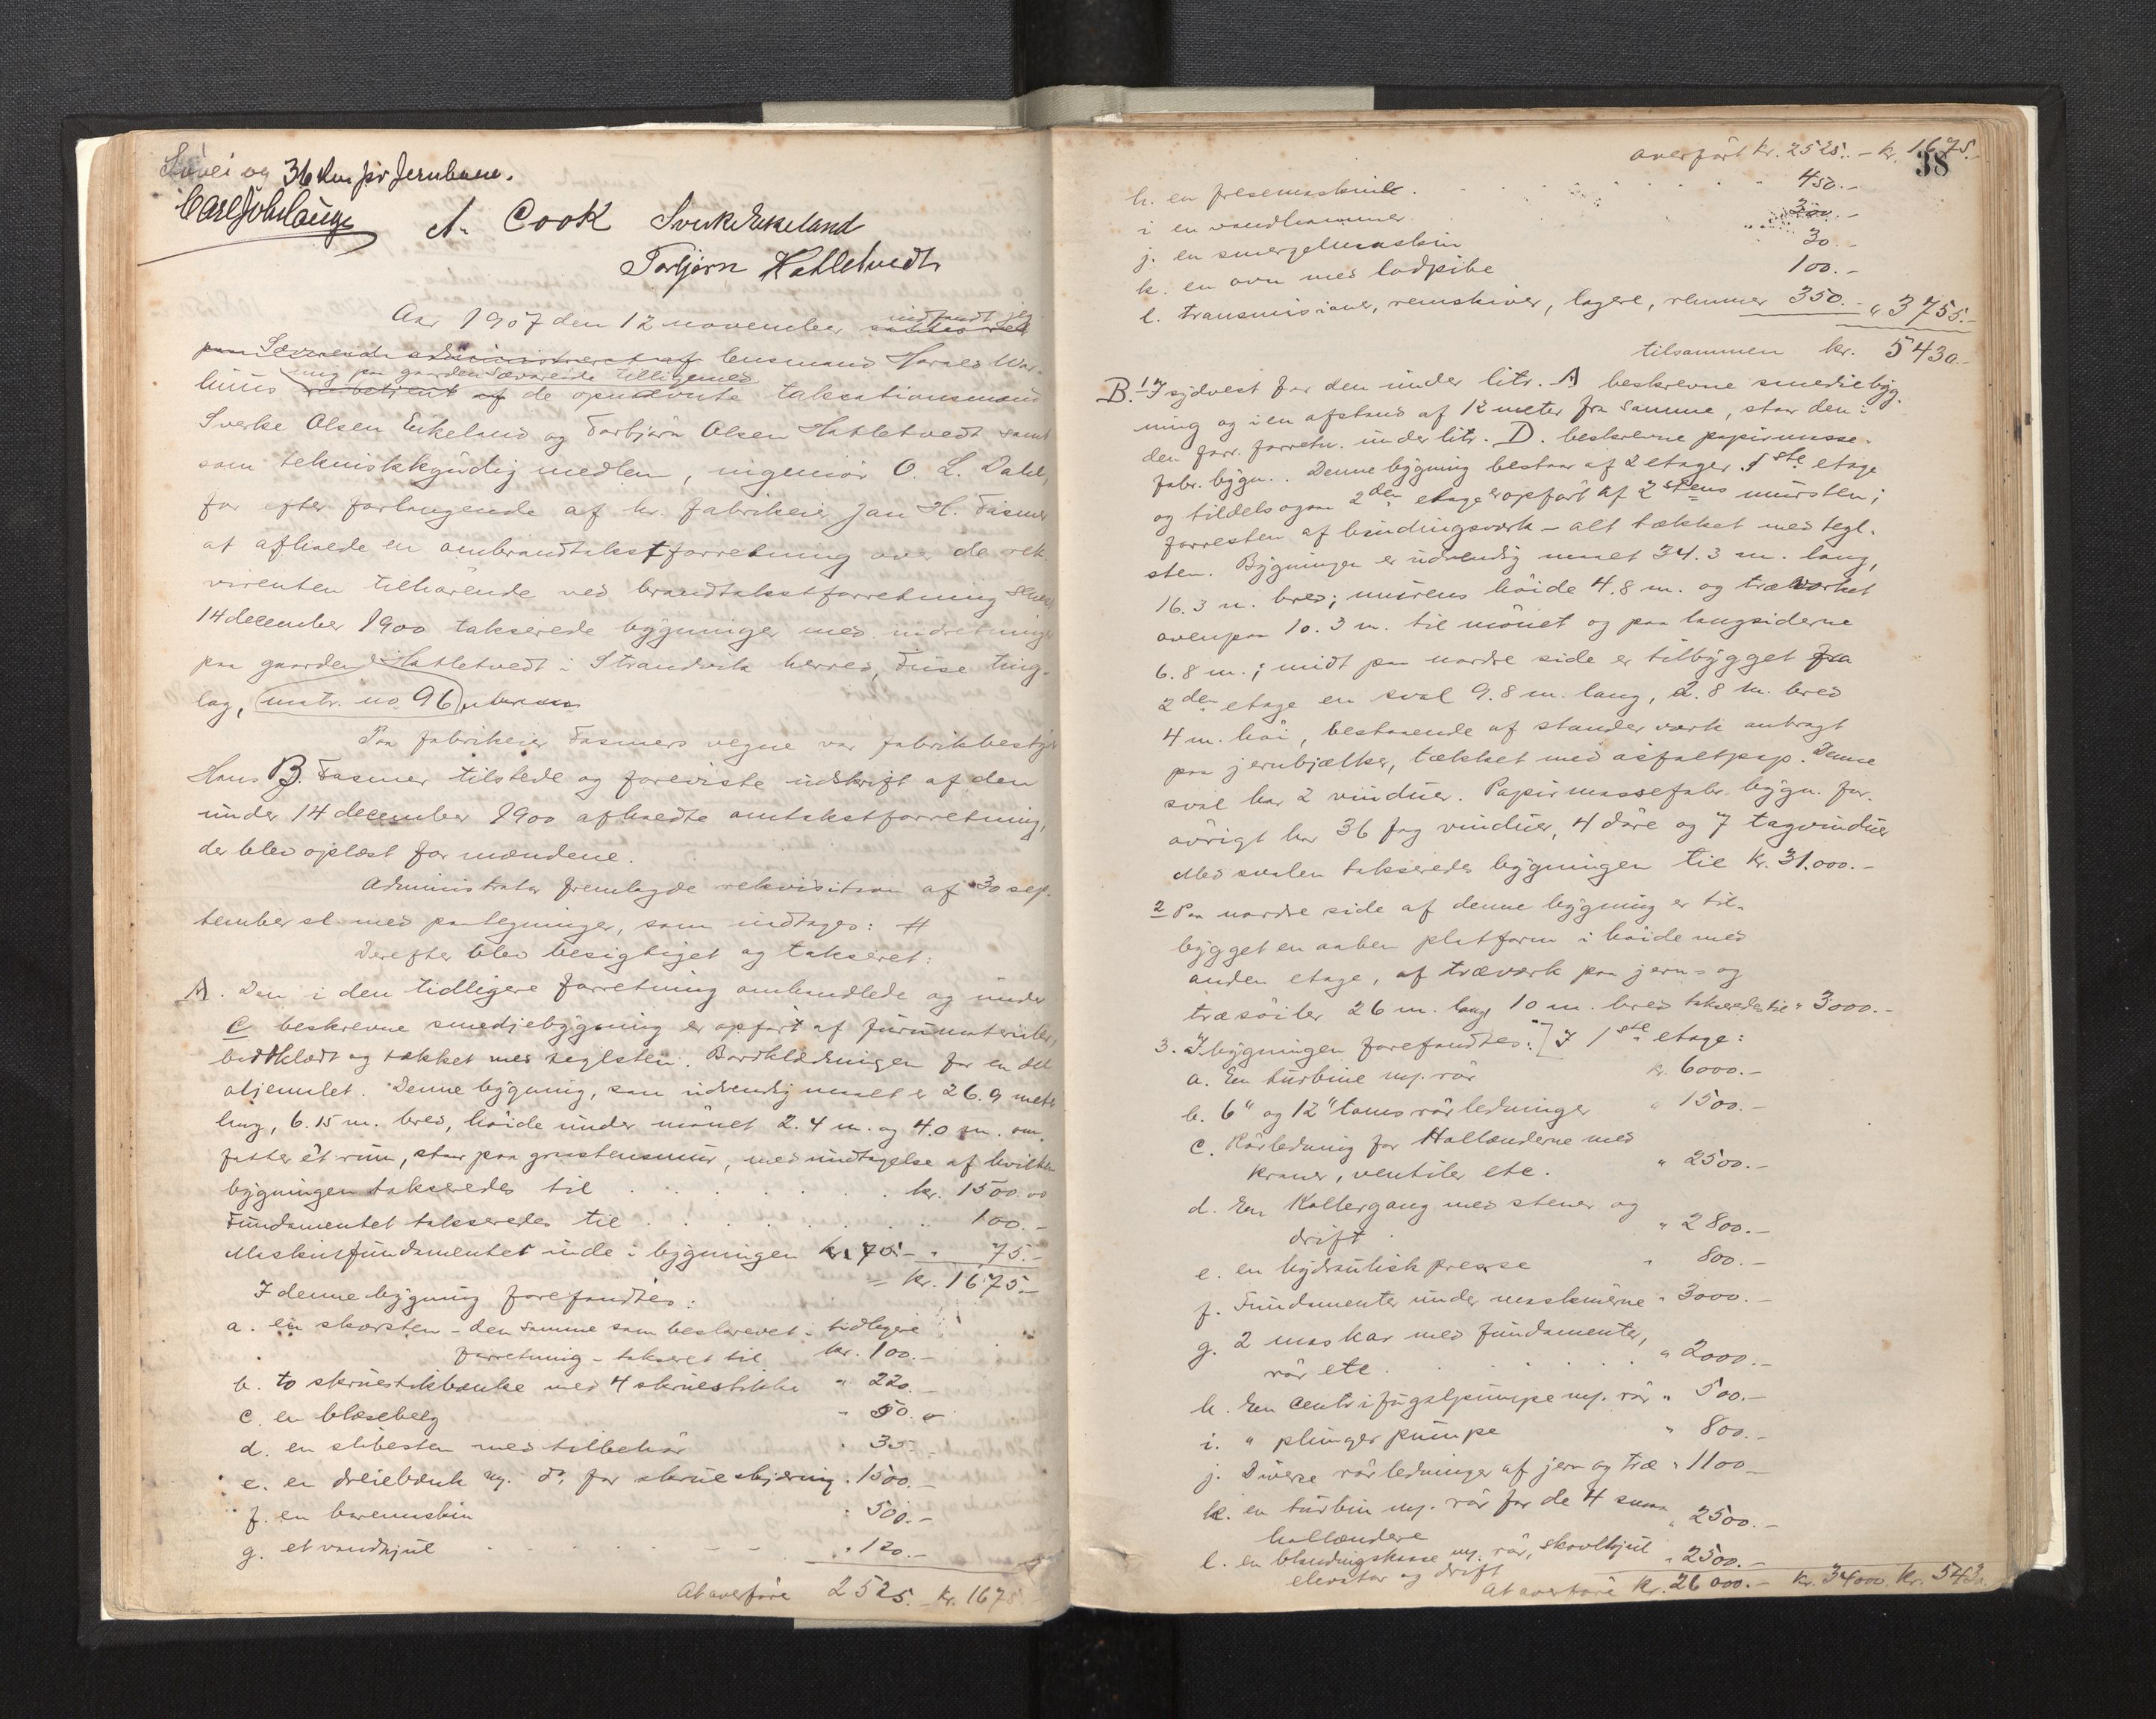 Søvei og 36 km pr jernbane.
Carl Joh Lange A. Cook Sverke Eikeland
Torbjørn Hatletvedt
Aar 1907 den 12 november indfandt jeg
lensmand Harald War-
huus mig paa gaarden Sævareide tilligemed
de opnævnte taksationsmænd
Sverke Olsen Eikeland og Torbjørn Olsen Hatletvedt samt
som tekniskkyndig medlem, ingeniør O. L. Dahl,
for efter forlangende af hr. fabrikeier Jan H. Fasmer
at afholde en ombrandtakstforretning over de rek-
virenten tilhørende ved brandtakstforretning
14 december 1900 takserede bygninger med indretninger
paa gaarden Hatletvedt i Strandvik herred, Fuse ting-
lag, matr. no. 96
Paa fabrikeier Fasmers vegne var fabrikbestyrer
Hans B. Fasmer tilstede og foreviste udskrift af den
under 14 december 1900 afholdte omtakstforretning,
der blev oplæst for mændene.
Administrator fremlagde rekvisition af 30 sep-
tember sl. med paategninger, som indtages: #
Derefter blev besigtiget og takseret:
A. Den i den tidligere forretning omhandlede og under
C beskrevne smedjebygning er opført af furumaterialer,
bordklædt og tækket med teglsten. Bordklædningen for en del
oljemalet. Denne bygning, som udvendig maalt er 26.9 meter
lang, 6.15 m. bred, høide under mønet 2.4 m. og 4.0 m. om-
fatter ét rum, staar paa graastensmur, med undtagelse af hvilken
bygningen takseredes til . . . . . . kr. 1500.00
Fundamentet takseredes til . . . . . . . 100.-
Maskinfundamentet inde i bygningen kr. 75.- " 75.-
= kr. 1675.-
I denne bygning forefandtes:
a. en skorsten - den samme som beskrevet i tidligere
forretning - takseret til kr. 100.-
b. to skruestikbænke med 4 skruestikke " 220.-
c. en blæsebelg " 50.-
d. en slibesten med tilbehør " 35.-
e. en dreiebænk og do for skrueskjæring " 1500.-
f. en boremaskin " 500.-
g. et vandhjul - - - - - " 120.-
At overføre 2525.- kr. 1675
38
Overført kr. 2525.- kr. 1675.-
h. en fresemaskine . . . . . . 450.-
i en vandhammer 300.-
j. en smergelmaskin 30.-
k. en ovn med lodpibe 100.-
l. transmisioner, remskiver, lagere, remmer 350.- " 3755.-
tilsammen kr. 5430.-
B. 1 I sydvest for den under litr. A beskrevne smediebyg-
ning og i en afstand af 12 meter fra samme, staar den i
den forr. forretn. under litr. D. beskrevne papirmasse-
fabr. bygn. Denne bygning bestaar af 2 etager. 1ste etage
og tildels ogsaa 2den etage er opført af 2 stens mursten;
forresten af bindingsværk - alt tækket med tegl-
sten. Bygningen er udvendig maalt 34.3 m. lang,
16.3 m. bred; murens høide 4.8 m. og træværket
ovenpaa 10.3 m. til mønet og paa langsiderne
6.8 m.; midt paa nordre side er tilbygget fra
2den etage en sval 9.8 m. lang, 2.8 m. bred
4 m. høi, bestaaende af standerværk anbragt
paa jernbjælker, tækket med asfaltpap. Denne
sval har 2 vinduer. Papirmassefabr. bygn. for-
øvrigt har 36 fag vinduer, 4 døre og 7 tagvinduer
Med svalen takseredes bygningen til kr. 31.000.-
2 Paa nordre side af denne bygning er til-
bygget en aaben platform i høide med
anden etage, af træværk paa jern- og
træsøiler 26 m. lang 10 m. bred takseredes til " 3000.-
3. I bygningen forefandtes: I 1ste etage:
a. En turbine m. rør kr. 6000.-
b. 6" og 12" toms rørledninger " 1500.-
c. Rørledning for Hollænderne med
kraner, ventiler etc. " 2500.-
d. En Kollergang med stener og
drift " 2800.-
e. en hydraulisk presse " 800.-
f. Fundamenter under maskinerne " 3000.-
g. 2 maskar med fundamenter,
rør etc. . . . . . . " 2000.-
h. En centrifugalpumpe m. rør " 500.-
i. " plunger pumpe " 800.-
j. Diverse rørledninger af jern og træ " 1100
k. en turbin m. rør for de 4 smaa
hollændere " 2500.-
l. en blandingskasse m. rør, skovlhjul
elevator og drift " 2500.-
At overføre kr. 26000.- kr. 34000 kr. 5430